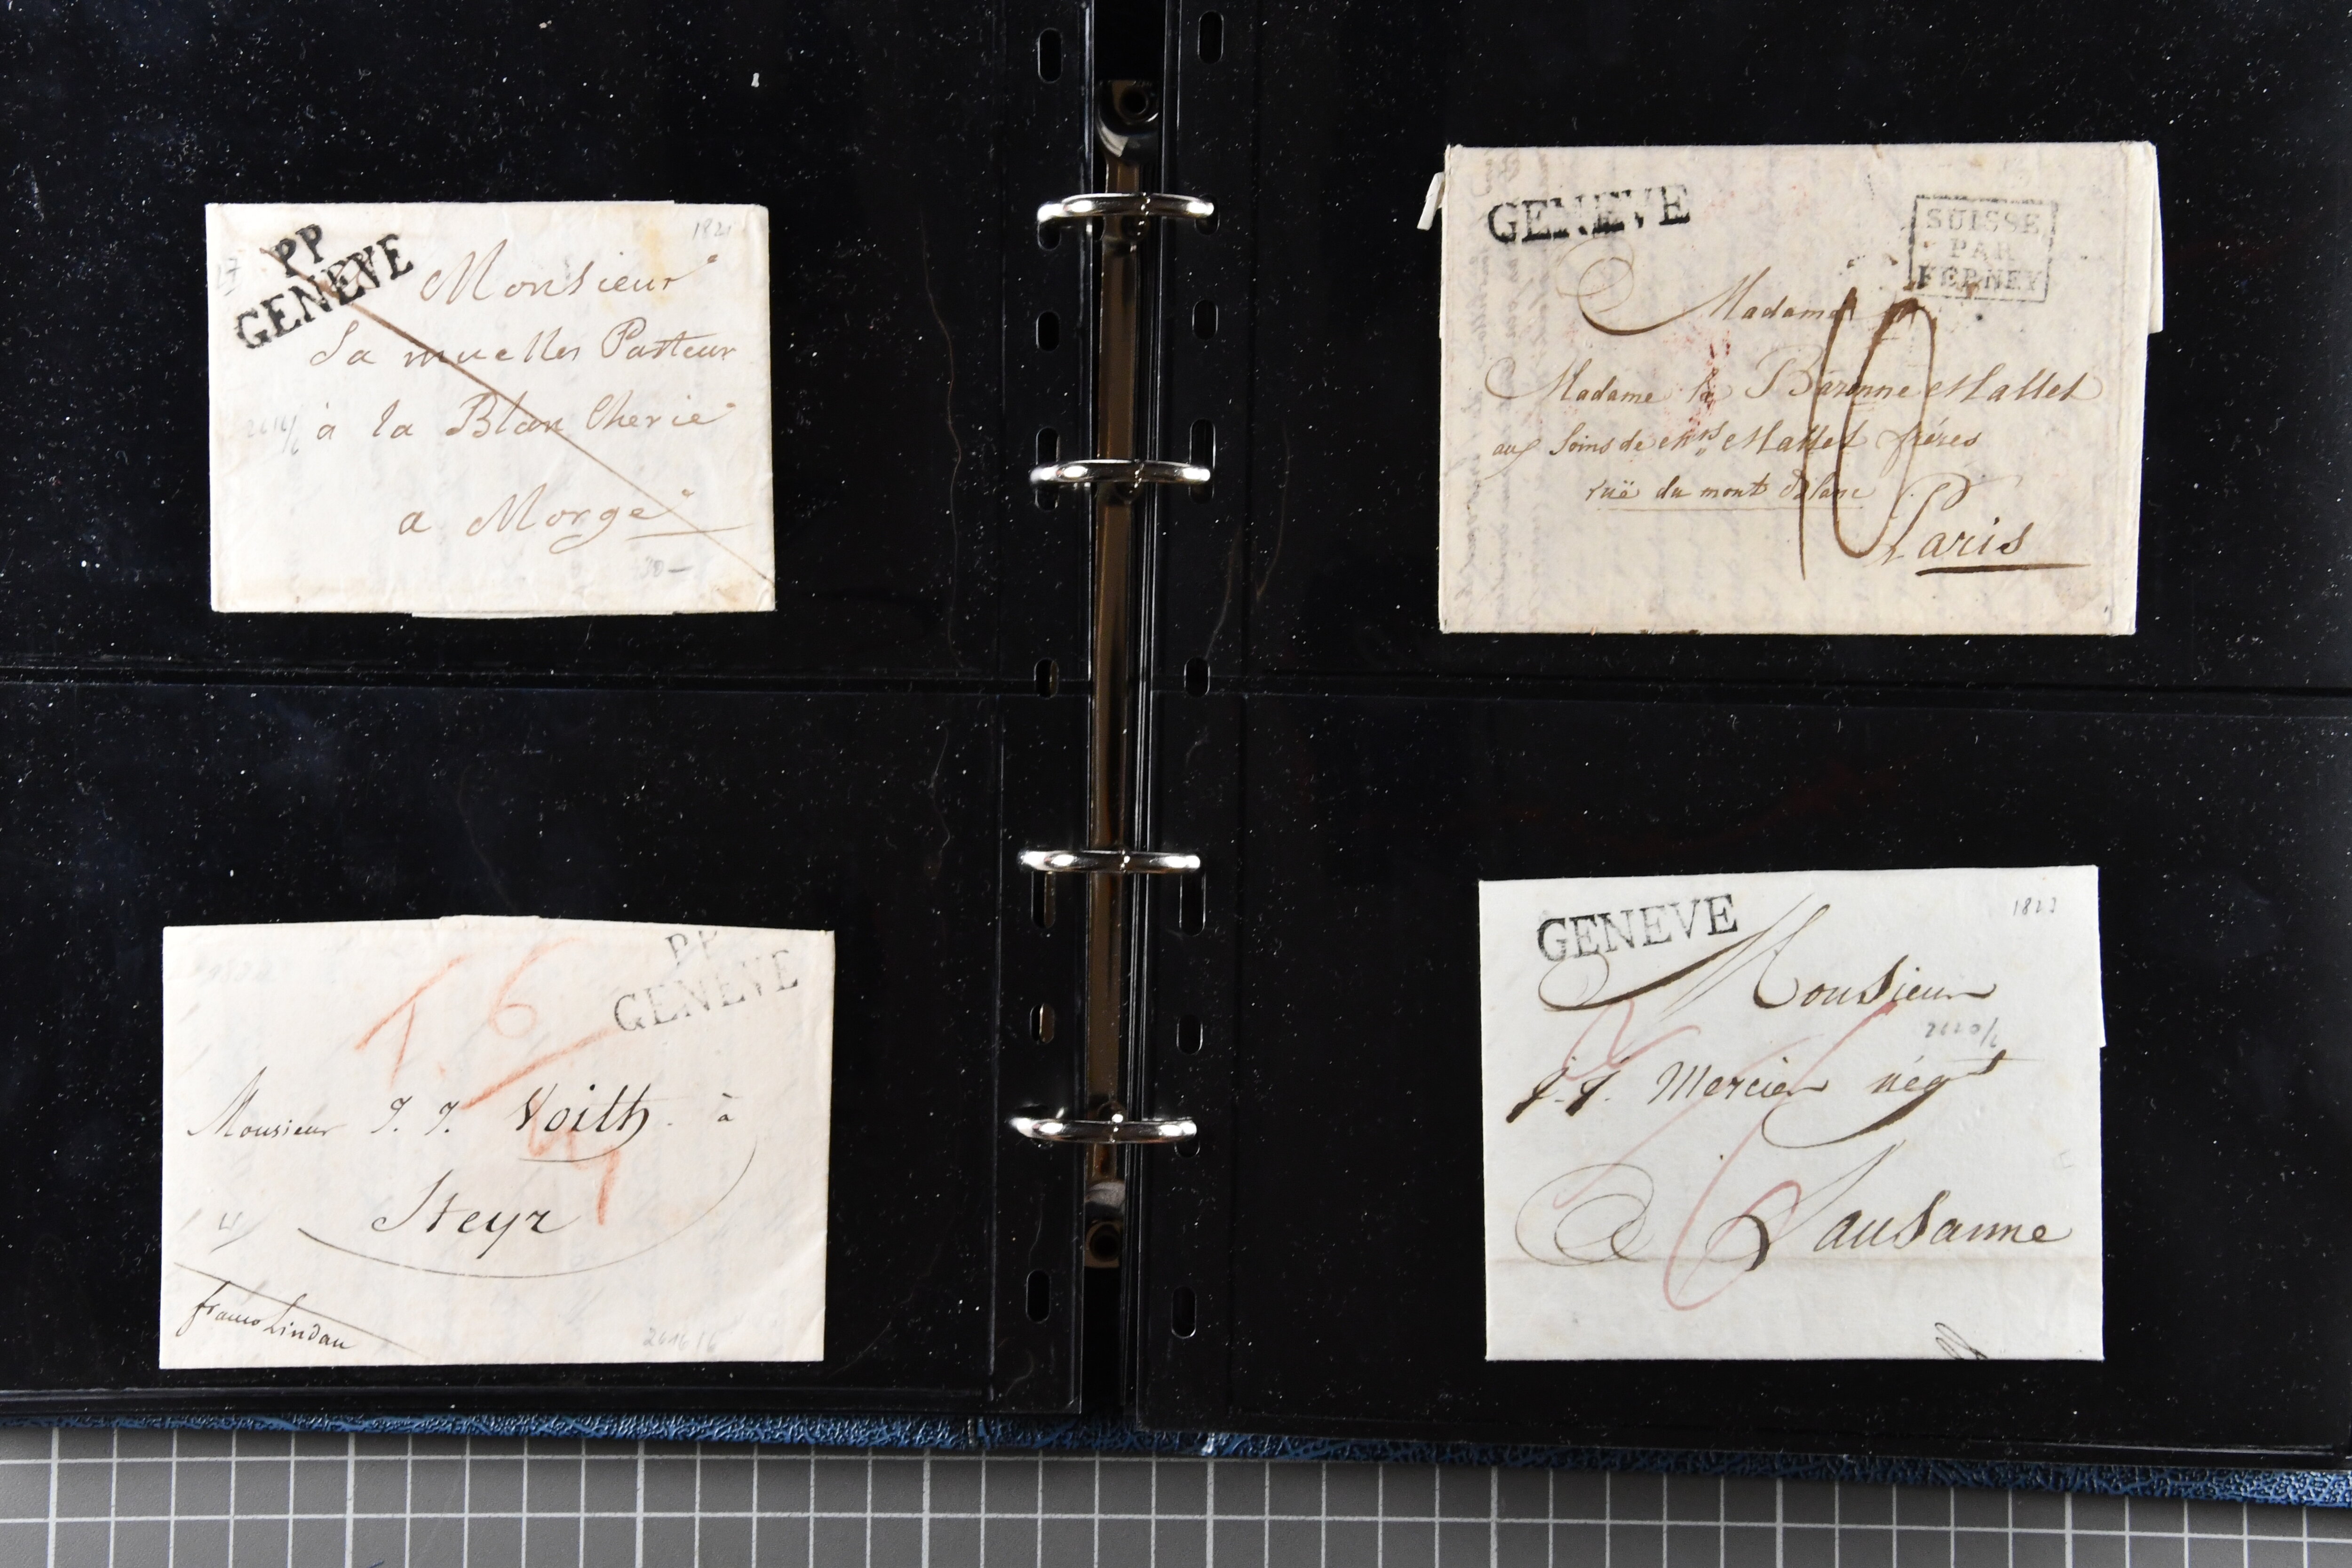 PP
GENEVE
1821
Monsieur
Sa muelles Pasteur
à la Blan Cherie
a Morge
30—
GENEVE
SUISSE
PAR
FERNEY
Madame
Madame la Baronne Mallet
aux soins de Mrs Mallet frères
ruë du mont blanc
Paris
PP
GENEVE
T. 6
Monsieur J. J. Voith à
Steyr
franco Lindau
2616/6
GENEVE
1823
Monsieur
2620/2
J. J. Mercier négt
6
à Lausanne